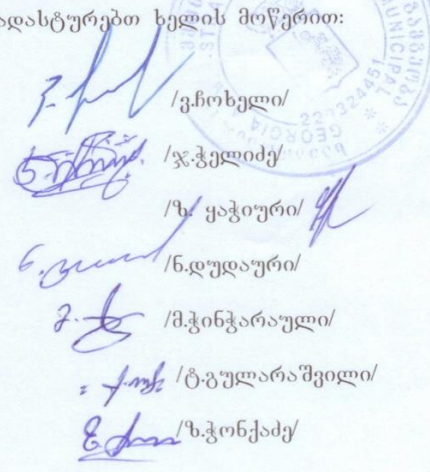 ადასტურებთ ხელის მოწერით:
/ვ.ჩოხელი/
/ჯ.ჭელიძე/
/ზ. ყაჭიური/
/ნ.დუდაური/
/მ.ჭინჭარაული/
/ტ.გულარაშვილი/
/ზ.ჭონქაძე/
MUNICIPAL
GEORGIA